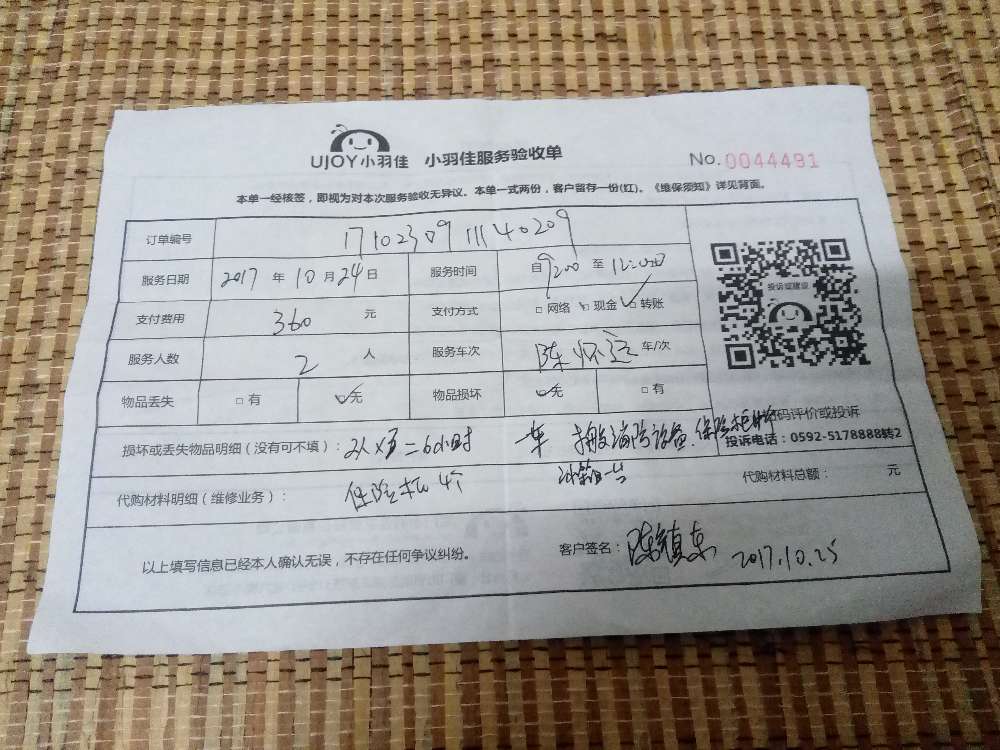 UJOY小羽佳 小羽佳服务验收单 No.0044491
本单一经核签，即视为对本次服务验收无异议。本单一式两份，客户留存一份(红)。《维保须知》详见背面。
订单编号 17102309111140209
服务日期 2017 年 10 月 24 日 服务时间 自 9:00 至 12:00
支付费用 360 元 支付方式 □ 网络 □ 现金 ✓ 转账
投诉或建议
服务人数 2 人 服务车次 陈怀运 车/次
物品丢失 □ 有 ✓无 物品损坏 ✓无 □ 有
扫码评价或投诉
损坏或丢失物品明细（没有可不填）： 2人×3=6小时 一车 搬消防设备.保险柜
投诉电话：0592-5178888转2
代购材料明细（维修业务）： 保险柜4个 代购材料总额： 元
以上填写信息已经本人确认无误，不存在任何争议纠纷。 客户签名： 陈镇东 2017.10.25